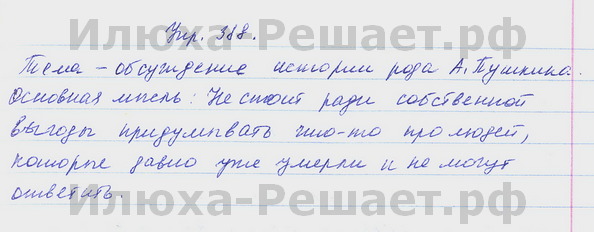 Илюха-Решает.рф
Упр. 388.
Тема – обсуждение истории рода А. Пушкина.
Основная мысль: Не стоит ради собственной
выгоды придумывать что-то про людей,
которые давно уже умерли и не могут
ответить.
Илюха-Решает.рф